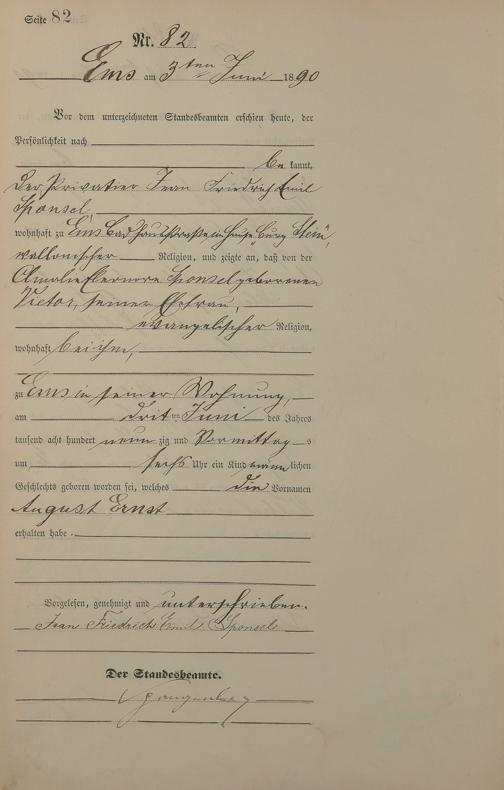 Seite 82
Nr. 82.
Ems am 3ten Juni 1890
Vor dem unterzeichneten Standesbeamten erschien heute, der
Persönlichkeit nach
be kannt,
der Privatier Jean Friedrich Emil
Sponsel,
wohnhaft zu Ems Bad Hauptstraße im Hause "Burg Stein",
wallonischer Religion, und zeigte an, daß von der
Amalie Eleonore Sponsel geborenen
Victor, seiner Ehefrau,
evangelischer Religion,
wohnhaft bei ihm,
zu Ems in seiner Wohnung,
am dritten Juni des Jahres
tausend acht hundert neun zig und Vormittag s
um sechs Uhr ein Kind männ lichen
Geschlechts geboren worden sei, welches die Vornamen
August Ernst
erhalten habe.
Vorgelesen, genehmigt und unterschrieben.
Jean Friedrich Emil Sponsel
Der Standesbeamte.